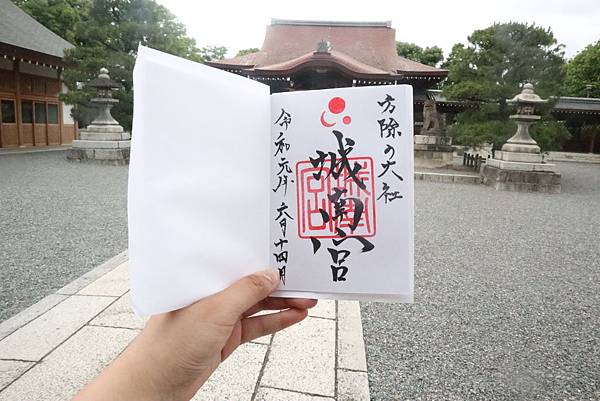 方除の大社
城南宮
令和元年 六月十四日